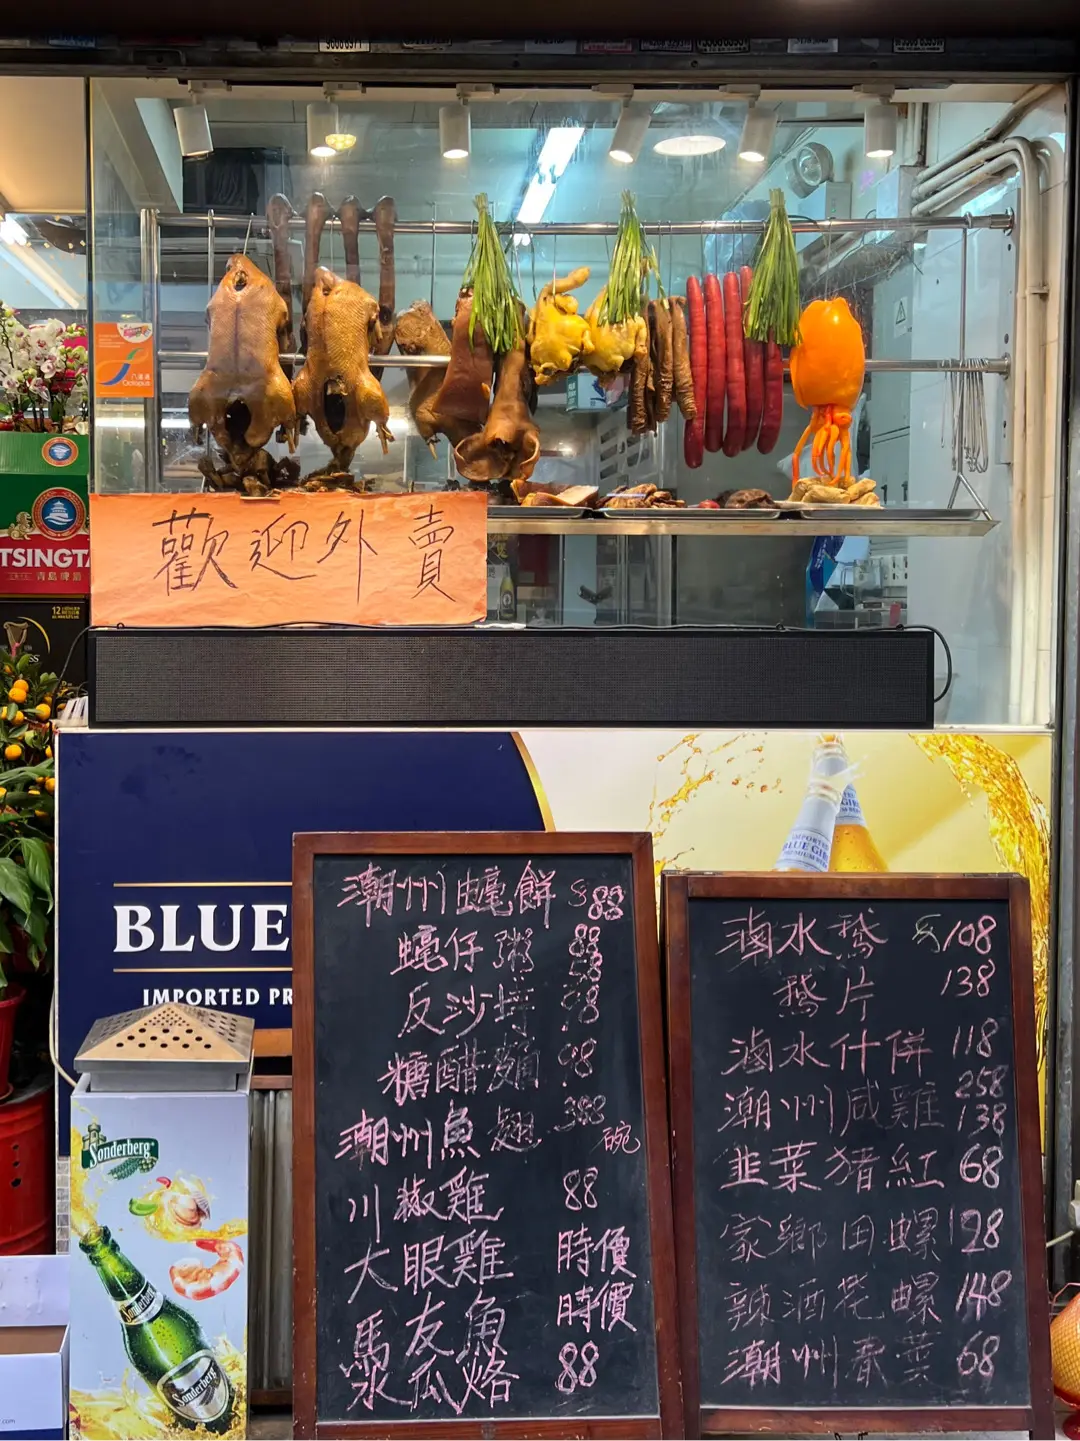 八達通
Octopus
TSINGTA
青島啤酒
歡迎外賣
12
BLUE
IMPORTED PR
IMPORTED
BLUE GI
Sonderberg
Sonderberg
潮州蠔餅 88
蠔仔粥 88 58
反沙芋 98
糖醋麵 98
潮州魚翅 388 碗
川椒雞 88
大眼雞 時價
馬友魚 時價
水瓜烙 88
滷水鵝 108
鵝片 138
滷水什併 118
潮州咸雞 258 138
韭菜猪紅 68
家鄉田螺 128
辣酒花螺 148
潮州春菜 68